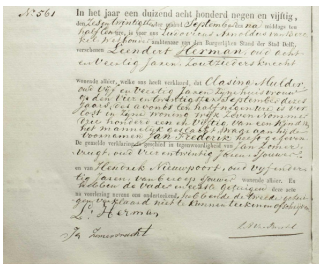 No. 561
In het jaar een duizend acht honderd negen en vijftig,
den zes en twintigsten der maand September des na middags ten
half een ure, is voor ons
Ambtenaar van den Burgerlijken Stand der Stad Delft,
verschenen Leendert Herman, oud acht
en veertig Jaren, Zoutziedersknecht
wonende alhier, welke ons heeft verklaard, dat Clasina Mulder,
oud vijf en veertig Jaren, zijn huisvrouw
op den vier en twintigsten September dezes
jaars, des avonds ten half negen ure, is ver-
lost in zijne woning wijk
honderd en vijftig van een Kind van
het mannelijk geslacht, hetwelk hij de
voornamen Jan Frederik heeft gegeven.
De gemelde verklaring is geschied in tegenwoordigheid van Jan Zomer-
vrugt, oud vier en twintig Jaren, Sjouwer
en van Hendrik Nieuwpoort, oud vijf en veer-
tig Jaren, van beroep sjouwer wonende alhier. En
hebben de vader en eerste getuige deze acte
na voorlezing nevens ons onderteekend, hebbende de tweede getui-
ge verklaard niet te kunnen schrijven.
L. Herman
Jan Zomervrucht